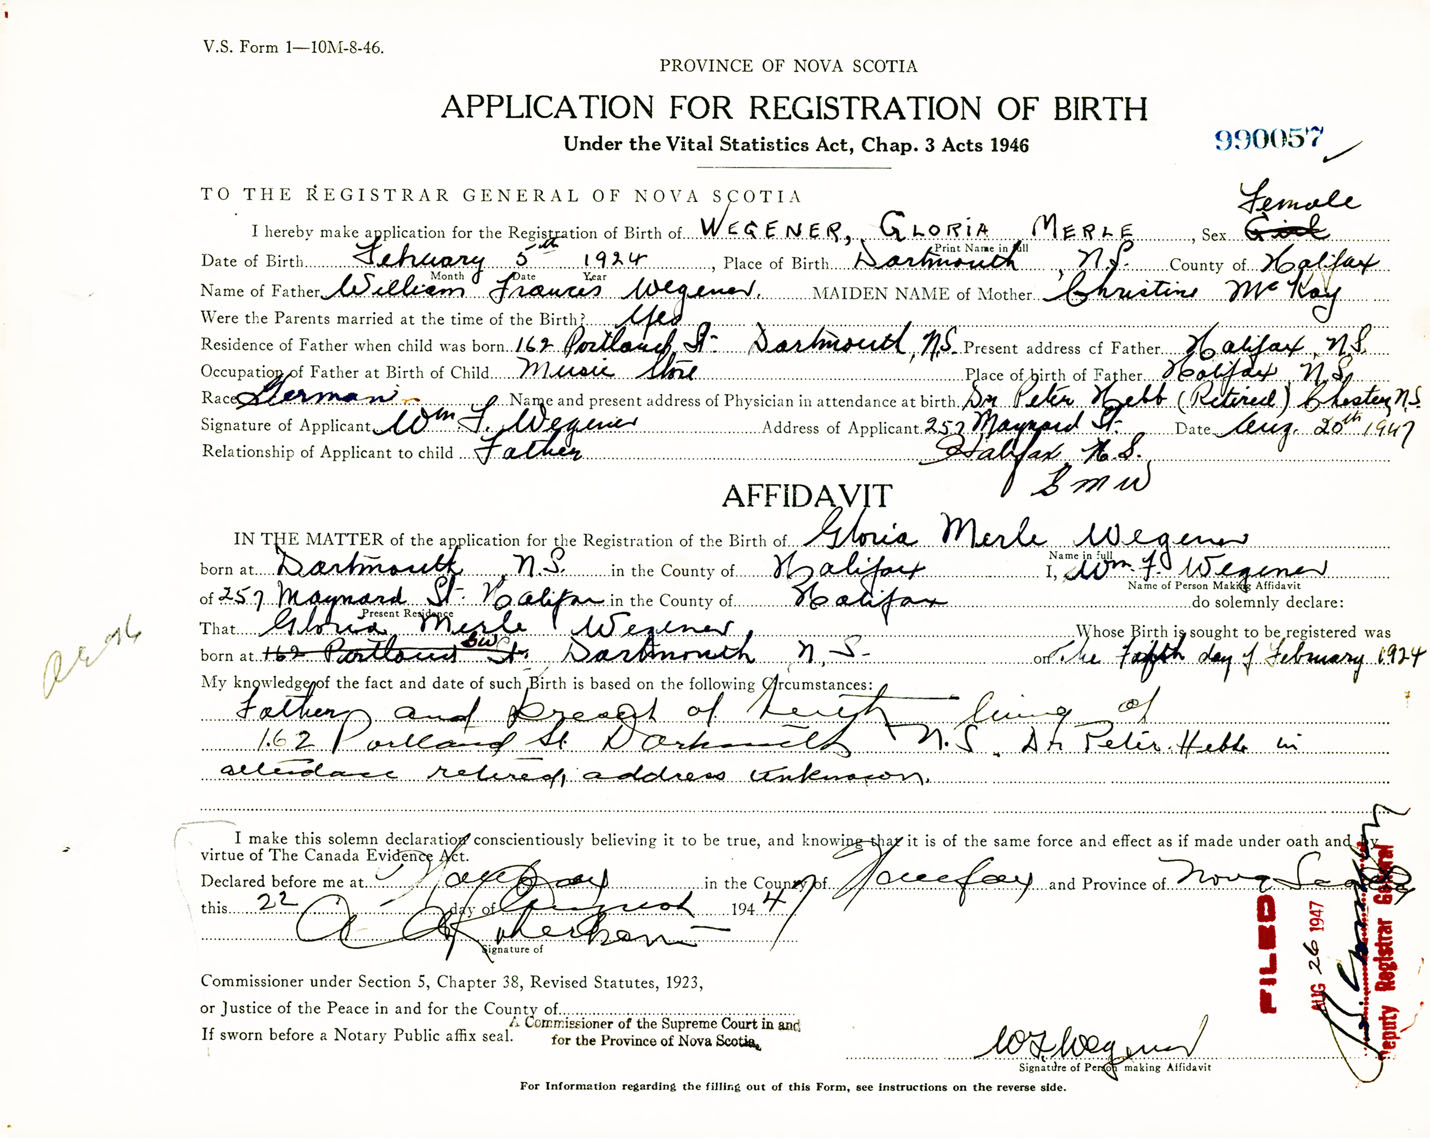 V.S. Form 1—10M-8-46.
PROVINCE OF NOVA SCOTIA
APPLICATION FOR REGISTRATION OF BIRTH
Under the Vital Statistics Act, Chap. 3 Acts 1946
990057
TO THE REGISTRAR GENERAL OF NOVA SCOTIA
Female
I hereby make application for the Registration of Birth of WEGENER, GLORIA MERLE, Sex Girl
Print Name in full
Date of Birth February 5th 1924, Place of Birth Dartmouth, N.S. County of Halifax
Month Date Year
Name of Father William Francis Wegener. MAIDEN NAME of Mother Christine McKay
Were the Parents married at the time of the Birth? Yes
Residence of Father when child was born 162 Portland St. Dartmouth, N.S. Present address of Father Halifax, N.S.
Occupation of Father at Birth of Child Music Store Place of birth of Father Halifax N.S.
Race German Name and present address of Physician in attendance at birth Dr Peter Hebb (Retired) Chester, N.S.
Signature of Applicant Wm F. Wegener Address of Applicant 257 Maynard St. Date Aug. 20th 1947
Relationship of Applicant to child Father Halifax N.S.
GMW
AFFIDAVIT
IN THE MATTER of the application for the Registration of the Birth of Gloria Merle Wegener
Name in full
born at Dartmouth, N.S. in the County of Halifax I, Wm F. Wegener
Name of Person Making Affidavit
of 257 Maynard St. Halifax in the County of Halifax do solemnly declare:
Present Residence
That Gloria Merle Wegener, Whose Birth is sought to be registered was
born at 162 Portland St. Dartmouth, N.S. on The Fifth day of February 1924
My knowledge of the fact and date of such Birth is based on the following Circumstances:
Father and present at birth living at
162 Portland St Dartmouth N.S. Dr Peter Hebb in
attendance retired, address unknown.
I make this solemn declaration conscientiously believing it to be true, and knowing that it is of the same force and effect as if made under oath and by
virtue of The Canada Evidence Act.
Declared before me at Halifax in the County of Halifax and Province of Nova Scotia
this 22 day of August 1947
Signature of
Commissioner under Section 5, Chapter 38, Revised Statutes, 1923,
or Justice of the Peace in and for the County of
If sworn before a Notary Public affix seal.
A Commissioner of the Supreme Court in and
for the Province of Nova Scotia.
W F Wegener
Signature of Person making Affidavit
FILED
AUG 26 1947
Deputy Registrar General
For Information regarding the filling out of this Form, see instructions on the reverse side.